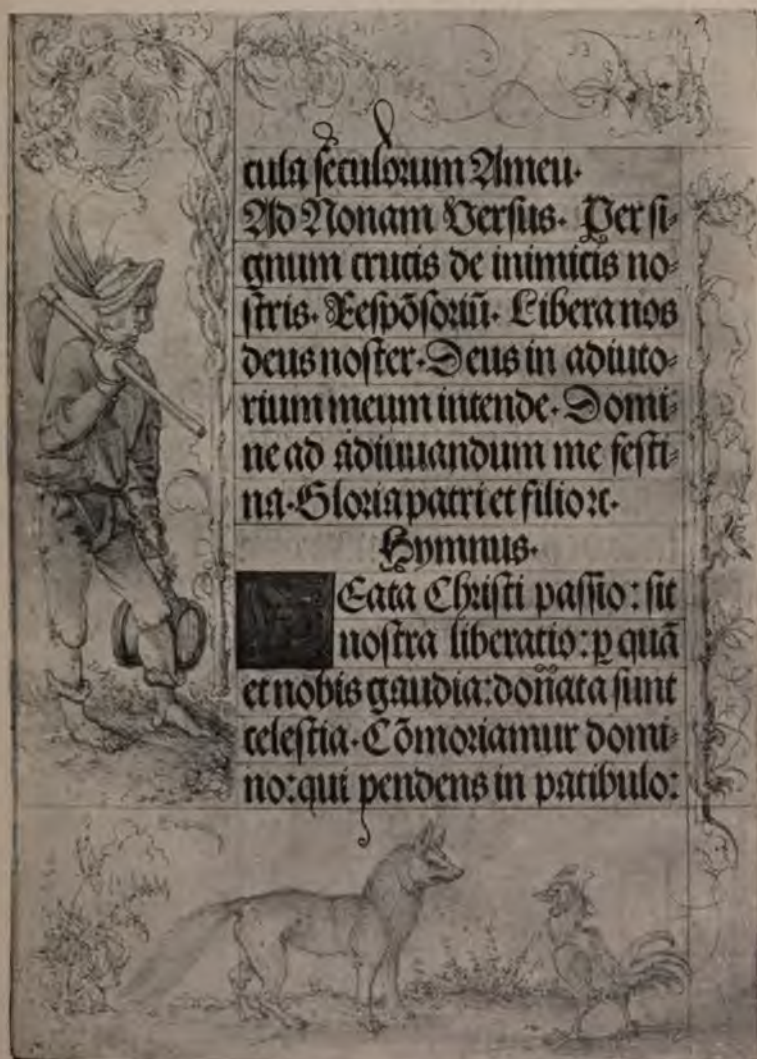 cula seculorum Amen.
Ad Nonam Versus. Per si-
gnum crucis de inimicis no-
stris. Respõsoriũ. Libera nos
deus noster. Deus in adiuto-
rium meum intende. Domi-
ne ad adiuuandum me festi-
na. Gloria patri et filio ꝛc.
Hymnus.
Eata Christi passio: sit
nostra liberatio: ꝑ quã
et nobis gaudia: doñata sunt
celestia. Cõmoriamur domi-
no: qui pendens in patibulo: